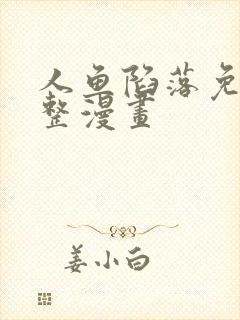 人鱼陷落免
整漫画
姜小白